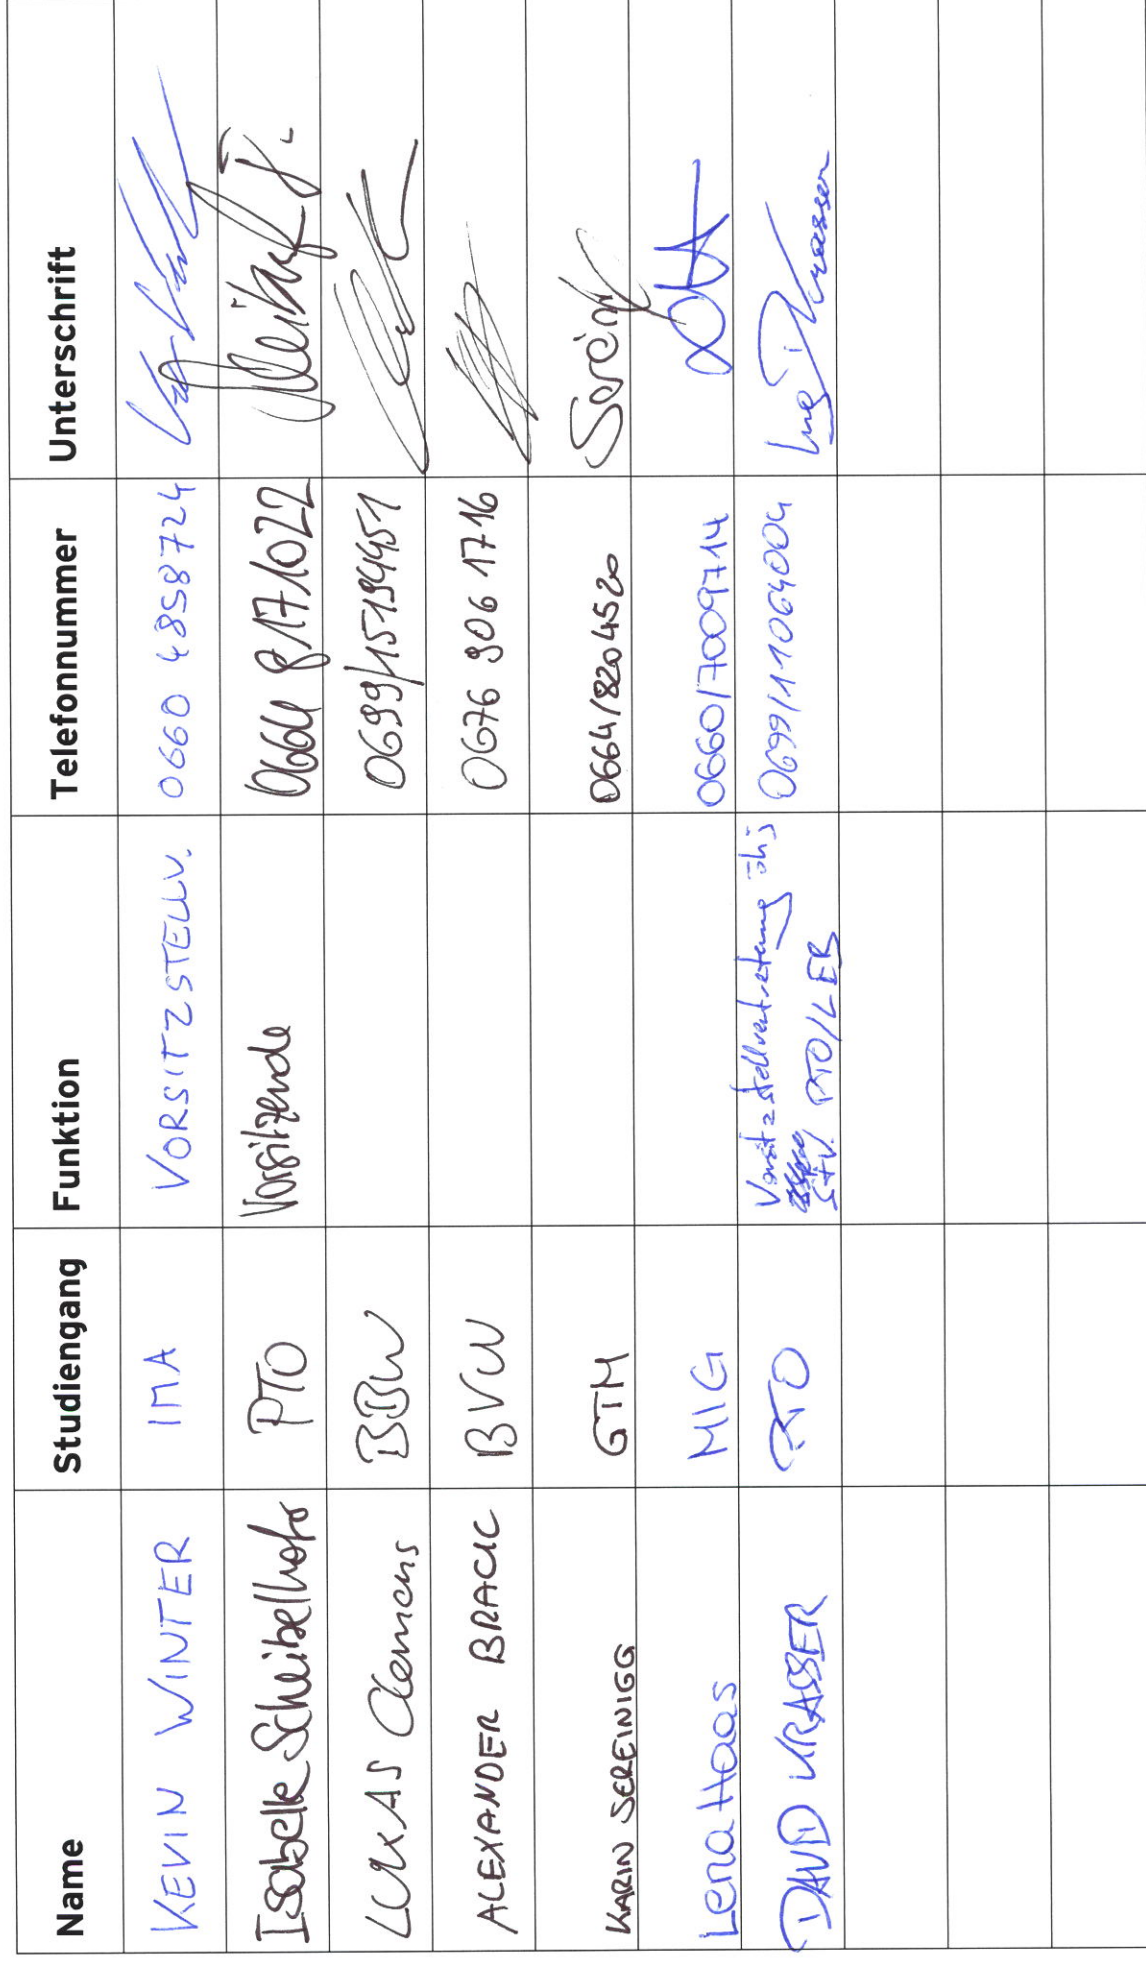 Name Studiengang Funktion Telefonnummer Unterschrift
KEVIN WINTER IMA VORSITZSTELLV. 0660 4858724
Isabelle Scheibelhofer PTO Vorsitzende 0664 8171022
LUKAS Clemens BBW 0699/15194451
ALEXANDER BRACIC BVW 0676 906 1716
KARIN SEREINIGG GTM 0664/8204520
Lena Haas MIG 0660/7009714
DAVID KRASSER PTO Vorsitzstellvertretung öhj 0699/11064004
STV. PTO/LEB